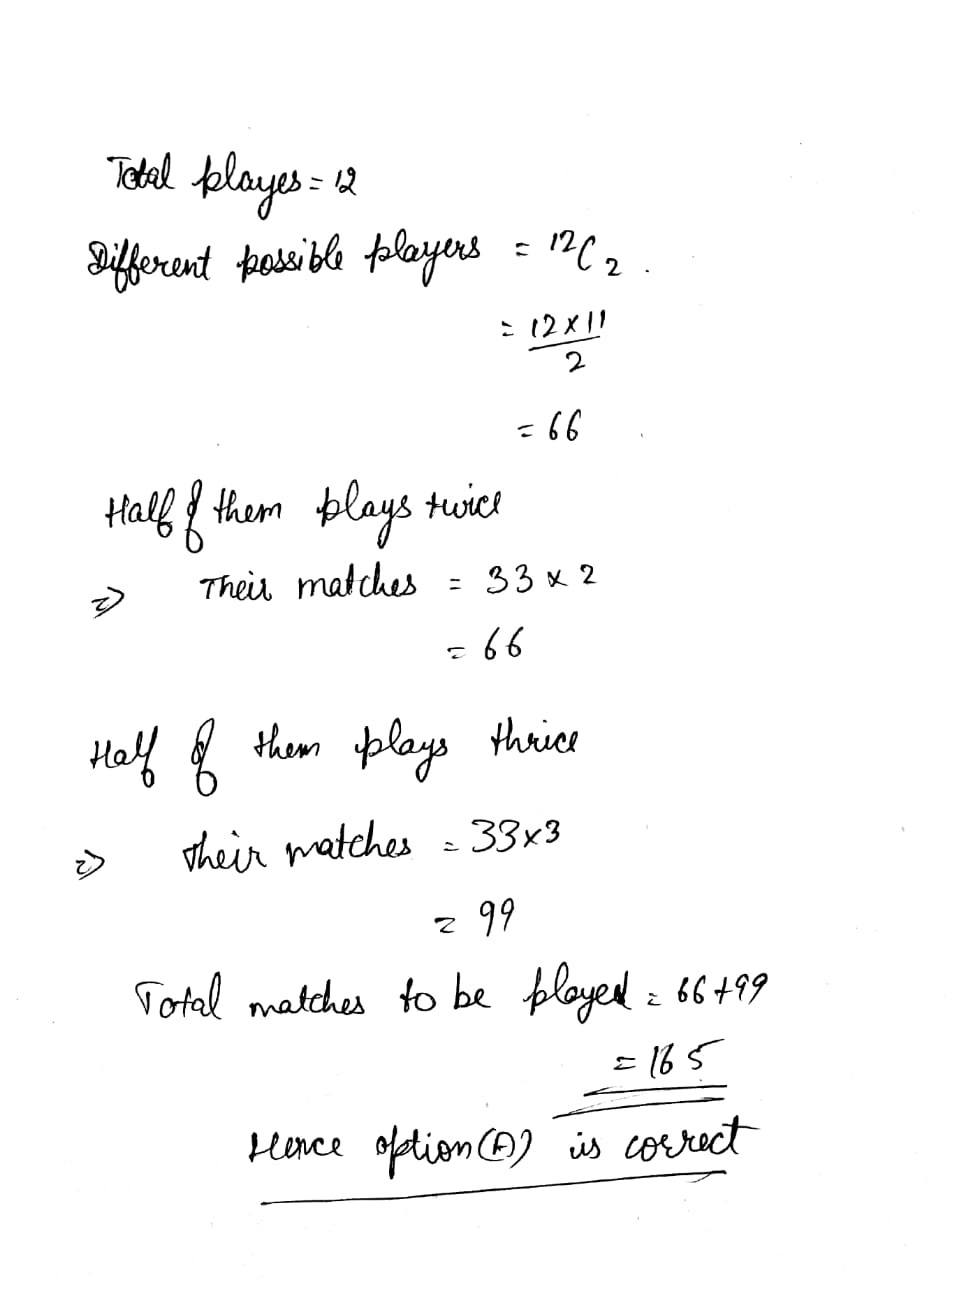 Total playes = 12
Different possible players = 12C2.
= 12 x 11
2
= 66
Half of them plays twice
⇒ Their matches = 33 x 2
= 66
Half of them plays thrice
⇒ their matches = 33x3
= 99
Total matches to be played = 66+99
= 165
Hence option (A) is correct